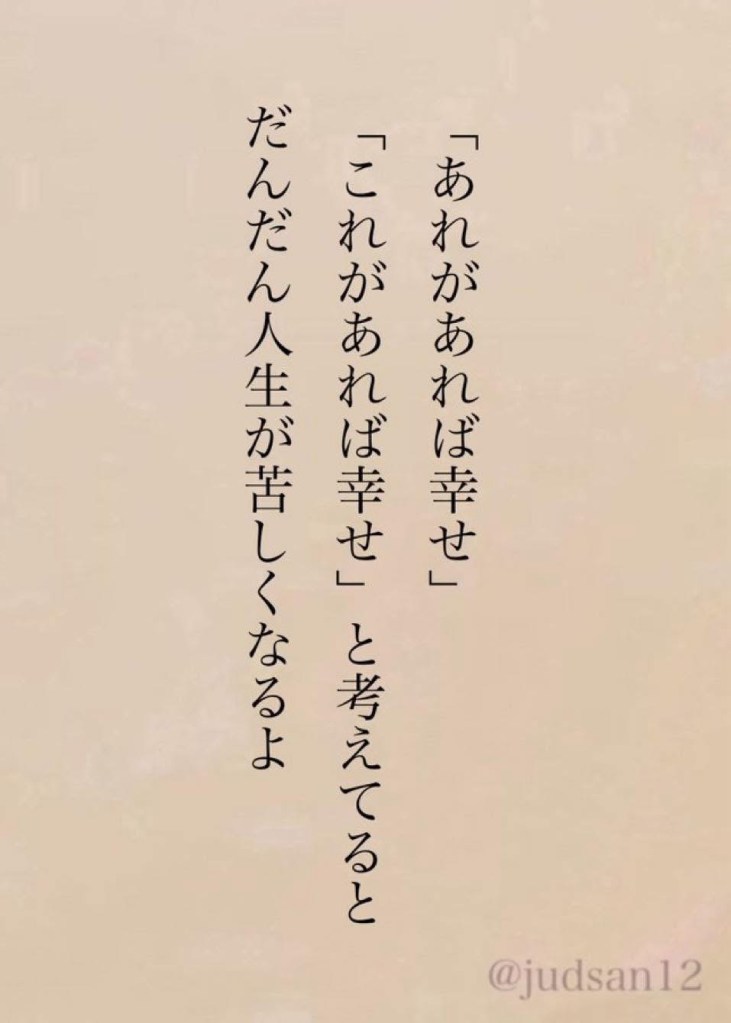 「あれがあれば幸せ」
「これがあれば幸せ」と考えてると
だんだん人生が苦しくなるよ
@judsan12